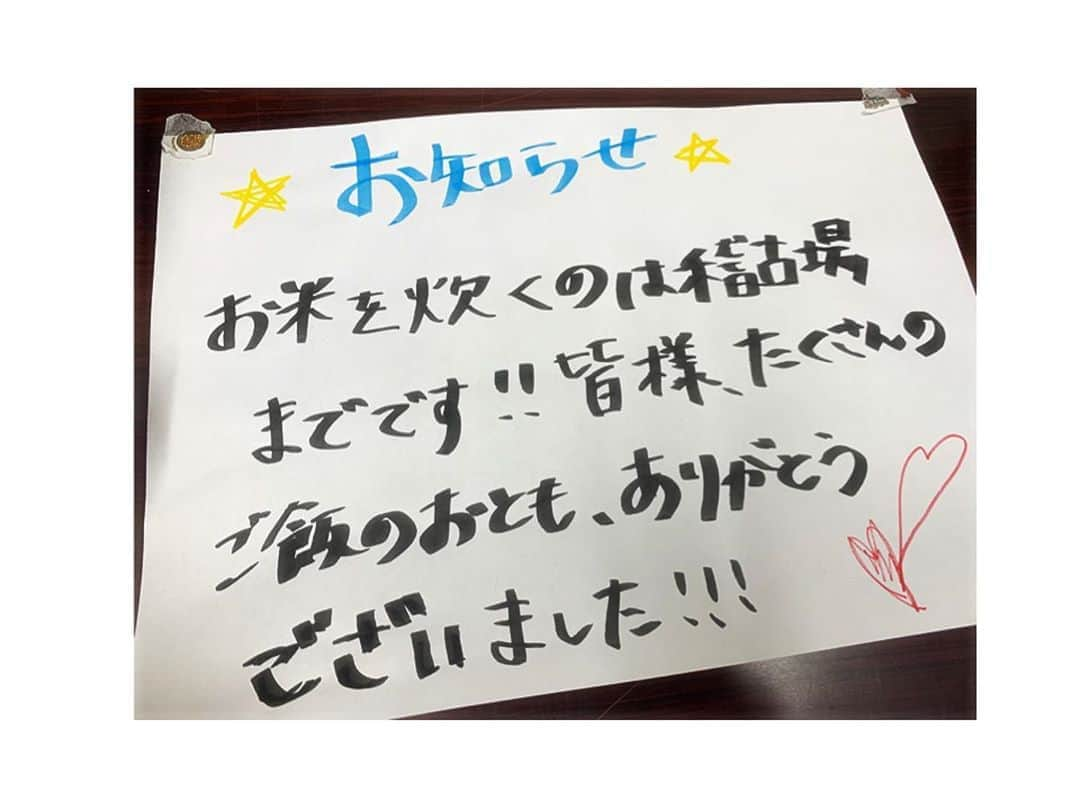 お知らせ
お米を炊くのは稽古場
までです!!皆様、たくさんの
ご飯のおとも、ありがとう
ございました!!!